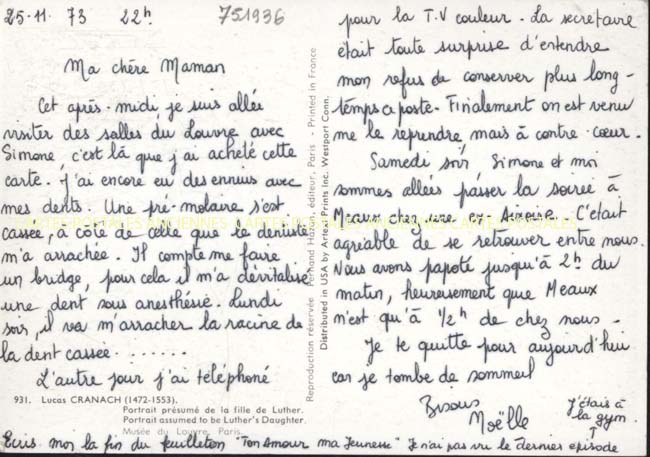 25.11.73 22h
751936
Ma chère Maman
Cet après-midi je suis allée
visiter des salles du Louvre avec
Simone c'est là que j'ai acheté cette
carte. J'ai encore eu des ennuis avec
mes dents. Une pré-molaire s'est
cassée, à côté de celle que le dentiste
m'a arrachée. Il compte me faire
un bridge, pour cela il m'a dévitalisé
une dent sous anesthésie. Lundi
soir, il va m'arracher la racine de
la dent cassée.......
L'autre jour j'ai téléphoné
931. Lucas CRANACH (1472-1553).
Portrait présumé de la fille de Luther.
Portrait assumed to be Luther's Daughter.
Musée du Louvre, Paris.
Reproduction réservée Fernand Hazan, éditeur, Paris - Printed in France
Distributed in USA by Artext Prints Inc. Westport Conn.
pour la T.V couleur. La secrétaire
était toute surprise d'entendre
mon refus de conserver plus long-
temps ce poste. Finalement on est venu
me le reprendre mais à contre-cœur.
Samedi soir Simone et moi
sommes allées passer la soirée à
Meaux chez une ex-Amoure. C'était
agréable de se retrouver entre nous.
Nous avons papoté jusqu'à 2h du
matin, heureusement que Meaux
n'est qu'à 1/2h de chez nous-
Je te quitte pour aujourd'hui
car je tombe de sommeil
Bisous
Noëlle
J'étais à
la gym.
Ecris-moi la fin du feuilleton "Ton Amour ma Jeunesse" Je n'ai pas vu le dernier épisode